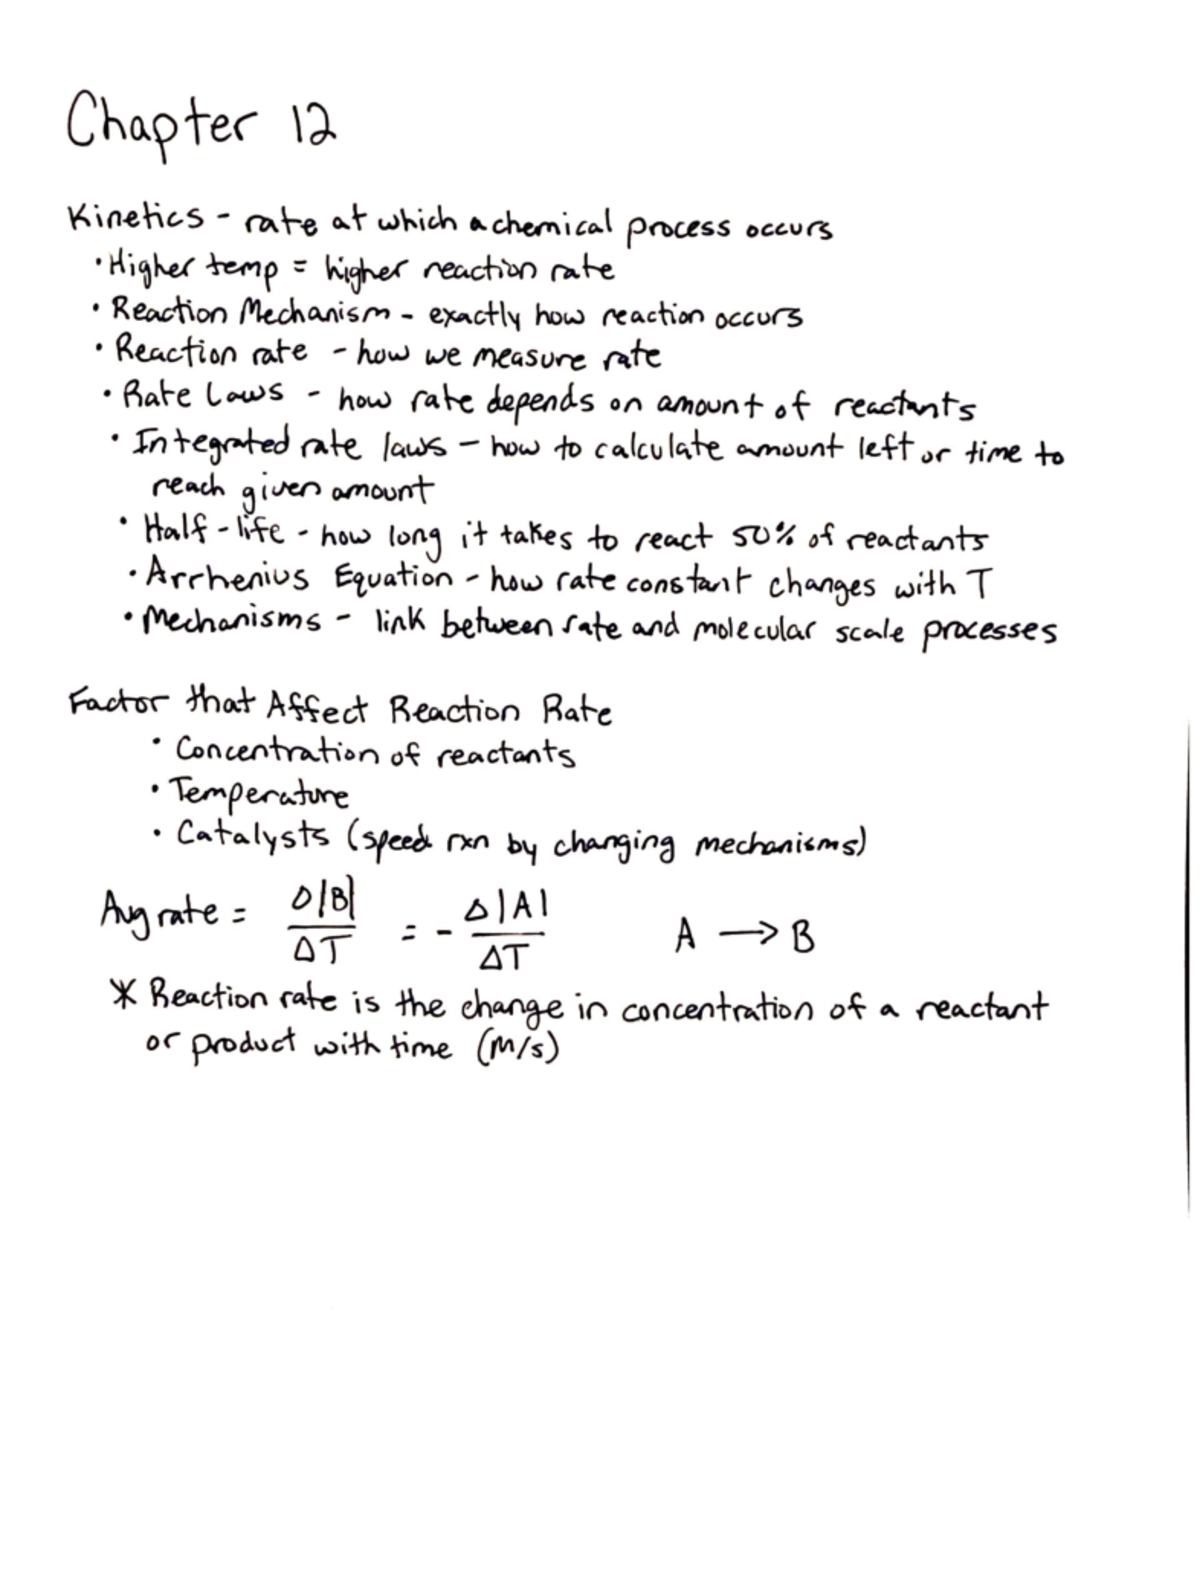 Chapter 12
Kinetics - rate at which a chemical process occurs
• Higher temp = higher reaction rate
• Reaction Mechanism - exactly how reaction occurs
• Reaction rate - how we measure rate
• Rate Laws - how rate depends on amount of reactants
• Integrated rate laws - how to calculate amount left or time to
reach given amount
• Half-life - how long it takes to react 50% of reactants
• Arrhenius Equation - how rate constant changes with T
• Mechanisms - link between rate and molecular scale processes
Factor that Affect Reaction Rate
• Concentration of reactants
• Temperature
• Catalysts (speed rxn by changing mechanisms)
Avg rate = Δ|B|/ΔT = - Δ|A|/ΔT A → B
* Reaction rate is the change in concentration of a reactant
or product with time (M/s)